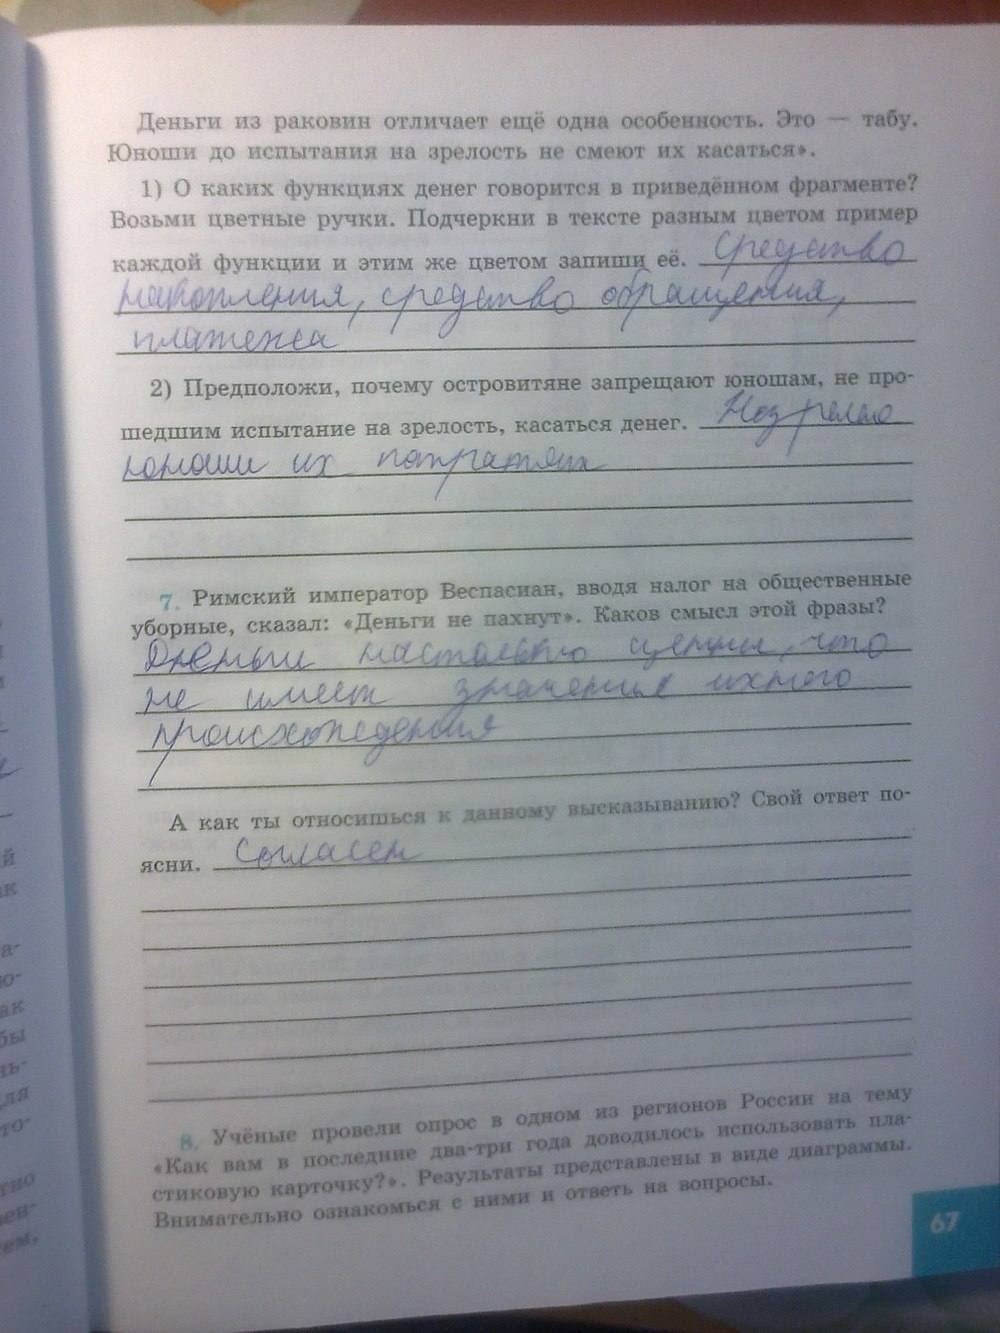 Деньги из раковин отличает ещё одна особенность. Это — табу.
Юноши до испытания на зрелость не смеют их касаться».
1) О каких функциях денег говорится в приведённом фрагменте?
Возьми цветные ручки. Подчеркни в тексте разным цветом пример
каждой функции и этим же цветом запиши её. Средство
накопления, средство обращения,
платежа
2) Предположи, почему островитяне запрещают юношам, не про-
шедшим испытание на зрелость, касаться денег.
юноши их потратят
7. Римский император Веспасиан, вводя налог на общественные
уборные, сказал: «Деньги не пахнут». Каков смысл этой фразы?
Деньги настолько ценны, что
не имеет значения
происхождения
А как ты относишься к данному высказыванию? Свой ответ по-
ясни. Согласен
8. Учёные провели опрос в одном из регионов России на тему
«Как вам в последние два-три года доводилось использовать пла-
стиковую карточку?». Результаты представлены в виде диаграммы.
Внимательно ознакомься с ними и ответь на вопросы.
67